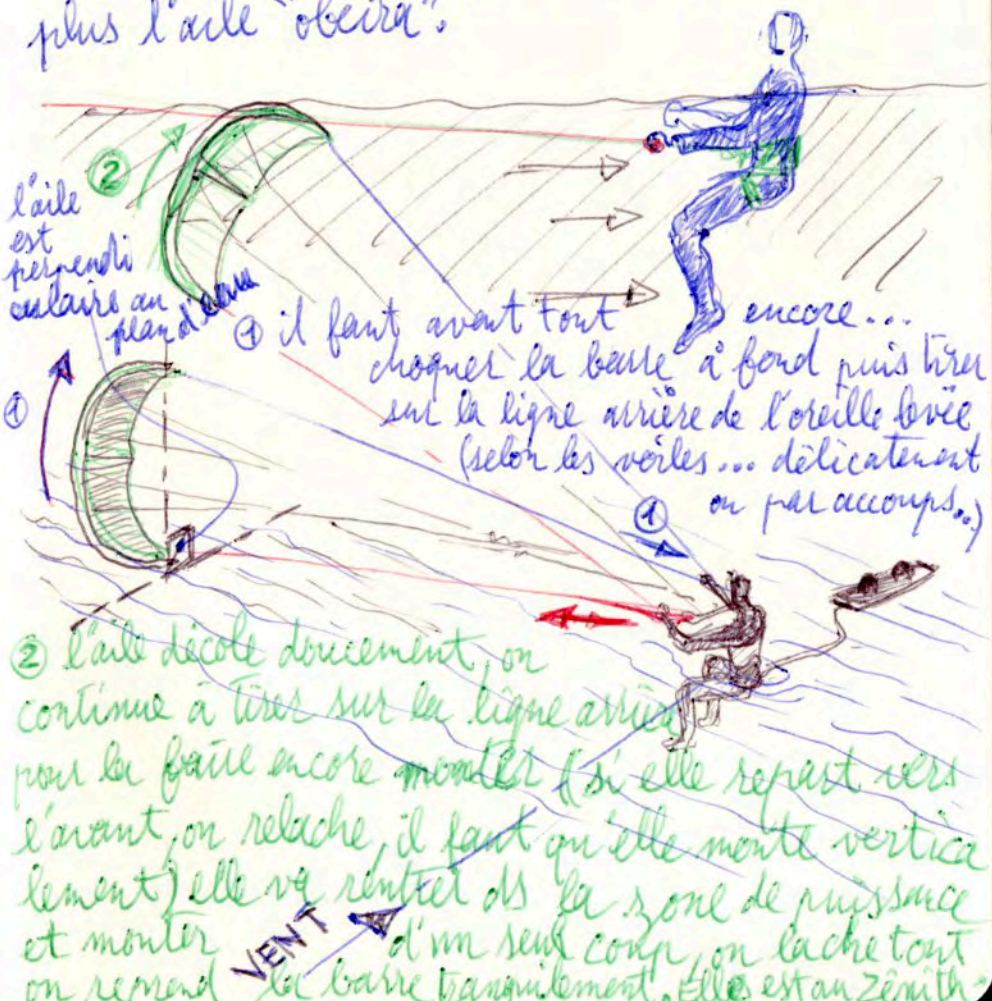 plus l'aile "obeira".
②
l'aile
est
perpendi
culaire au
plan d'eau
① il faut avant tout encore...
choquer la barre à fond puis tirer
sur la ligne arrière de l'oreille levée
(selon les voiles... délicatement
ou par accoups..)
①
①
② l'aile décole doucement, on
continue à tirer sur la ligne arrière
pour la faire encore monter (si elle repart vers
l'avant, on relache, il faut qu'elle monte vertica
lement) elle va rentrer ds la zone de puissance
et monter d'un seul coup, on lache tout
on reprend la barre tranquilement. Elle est au zénith
VENT